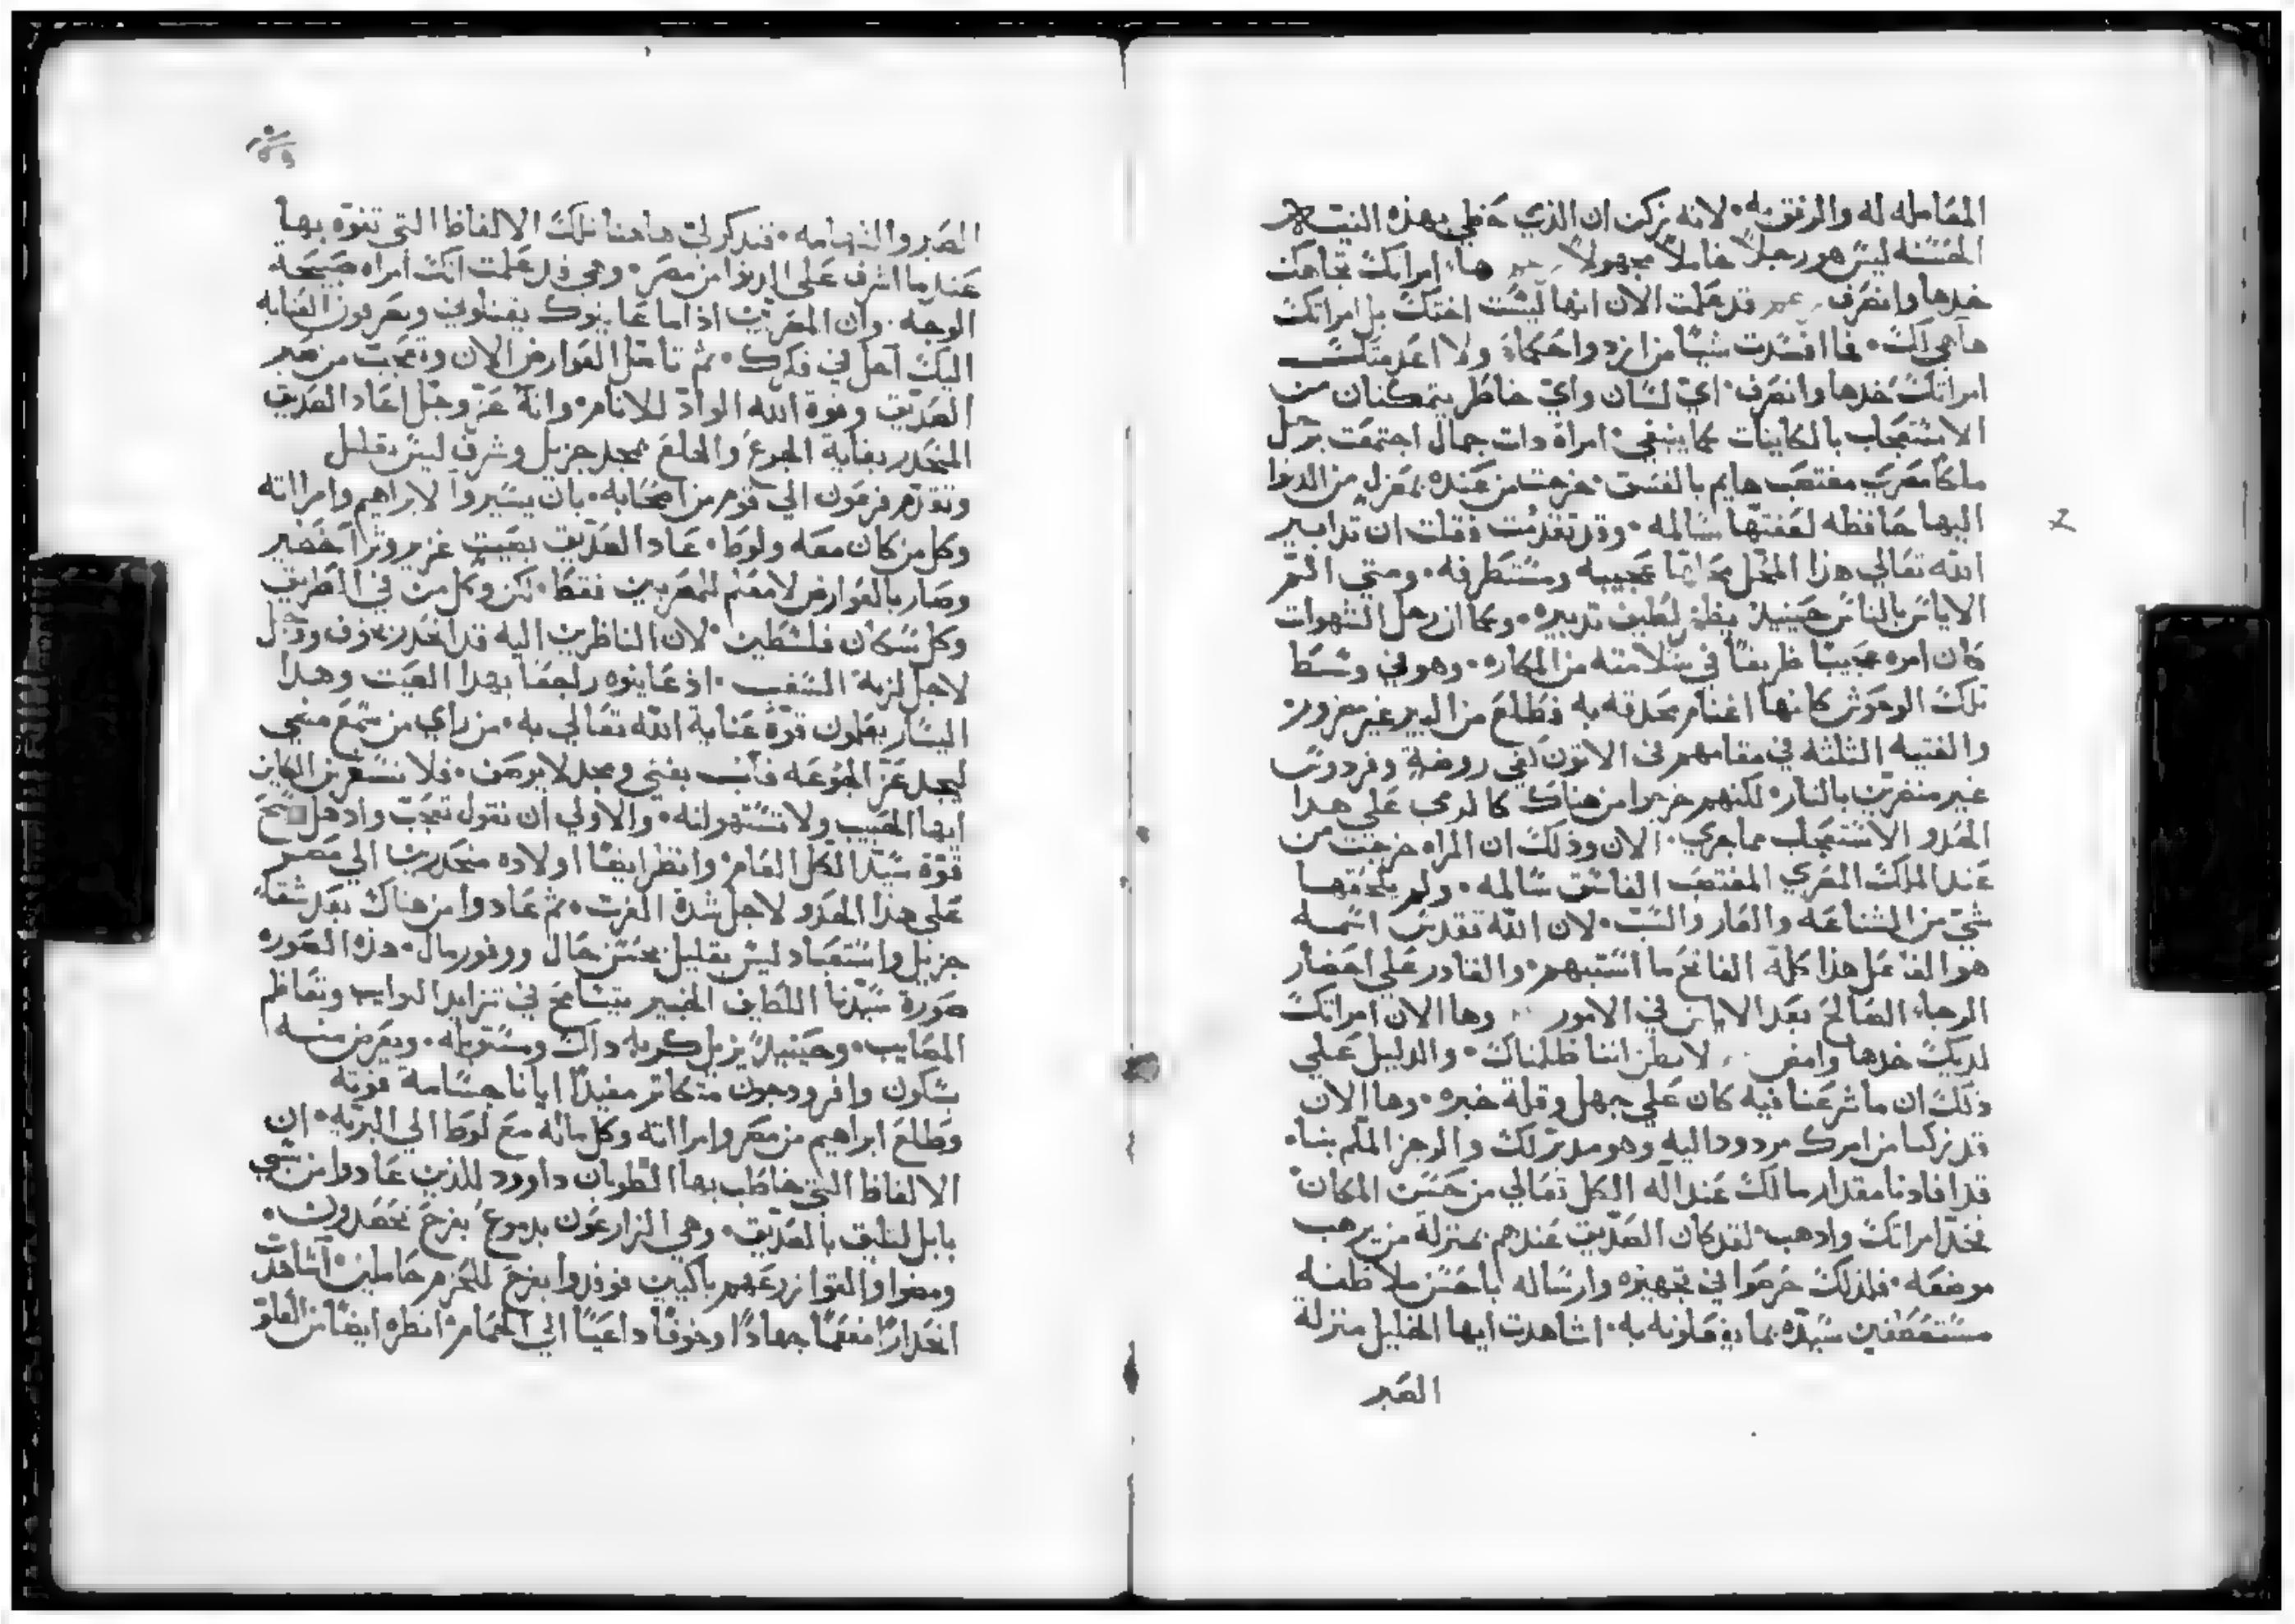 المعامله له والرفق به • لانه يزكن ان الذي حظي بهذه النيه
الحسنه ليس هو رجلاً خاملاً مجهولاً ها امراتك تجاهك
خدها وانصرف قد علمت الان انها ليست اختك بل امراتك
هاهي لك • فما افسدت شيا من ازدواجكما ولا اعدمتك
امراتك خدها وانصرف • اي لسان واي خاطر يتمكنان من
الاستعجاب بالكاينات كما ينبغي • امراة دات جمال اجتمعت برجل
ملكا مصري مغتصب هايم بالفسق • خرجت من عنده بمعزل من الدنوا
اليها حافظه لعفتها سالمه • وقد تقدمت فقلت ان تدابير
الله تعالي هذا المحل محلها عجيبه ومستطرفه • ومتي
الاياس بالناس حينيد يظهر لطيف تدبيره • وكما ان رجل الشهوات
كان امره عجيبا ظريفا في سلامته من المكاره • وهو في وسط
تلك الوحوش كانها اغنام محدقه به فطلع من البير غير مضرور •
والفتيه الثلثه في مقامهم في الاتون لفي روضة وفردوس
غير منضرين بالنار • لكنهم خرجوا من هناك كالذي علي هدا
الحدو الاستعجاب مما جري • الان وذلك ان المراه خرجت من
عند الملك المصري المغتصب الفاسق سالمه • ولم يلحقها
شي من الشناعه والعار والسب • لان الله تقدس اسمه
هو الفاعل هذا كله الفاتح ما استبهم • والقادر علي احضار
الرجاء الصالح بعد الاياس في الامور وها الان امراتك
لديك خدها وامض لا تظن اننا ظلمناك • والدليل علي
ذلك ان ما شرعنا فيه كان علي جهل وقلة خبره • وها الان
قد تركنا من امرك مردودا اليه وهو مدبر لك والرجز الملم بنا •
قد افادنا مقدار مالك عند اله الكل تعالي من حسن المكان •
فخد امراتك وادهب • لقد كان الصديق عندهم بمنزلة من يرهب
موضعه • فلذلك حرصوا في تجهيزه وارساله باحسن ملاطفه
مستعطفين سيده بما يفعلونه به • اشاهدت ايها الخليل منزلة
الصبر
الصبر والشهامه • فتدكر لي هاهنا تلك الالفاظ التي تفوه بها
عندما اشرف علي الدنوا من مصر • وهي قد علمت انك امراه صبيحة
الوجه • وان المصريين اذا ما عاينوك يقتلوني ويصرفون العنايه
اليك اجل في فكرك • ثم تامل العوارض الان وتعجب من صبر
الصديق وقوة الله الواد للانام • وانه عز وجل اعاد الصديق
المنحدر بغاية الجزع والهلع بمجد جزيل وشرف ليس بقليل
وتقدم فرعون الي قوم من اصحابه • بان يسيروا لابراهيم وامراته
وكل من كان معه ولوط • عاد الصديق بصيت غزير وثراً خضير
وصار بالعوارض لا معلم للمصريين فقط • لكن وكل من في الطريق
وكل سكان فلسطين • لان الناظرين اليه قد انحدر بخوف ووجل
لاجل لزبة السغب • اذ عاينوه راجعا بهدا الصيت وهدا
اليسار يعلمون قوة عناية الله تعالي به • من راي من سمع مضي
ليجد عز المجوعه فآب بغني ومجد لا يوصف • فلا نستغربن الكاين
ايها الحبيب ولا تستهولنه • والاولي ان نقول تعجب وادهل
قوة سيد الكل العام • وانظر ايضا اولاده منحدرين الي مصر
علي هذا الحدو لاجل شدة الغرث • ثم عادوا من هناك بعد شقا
جزيل واستعباد ليس بقليل بحسن حال ووفور مال • هذه الصوره
صورة سيدنا اللطيف الخبير يتسامح في تزايد النوايب وتفاظم
المصايب • وحينيد يزيل كريه داك ومستوبله • ويعرض منه
سكون وافر ودجون متكاتر مفيداً ايانا جسامة قوته
وطلع ابراهيم من مصر وامراته وكل ماله مع لوط الي البريه • ان
الالفاظ التي خاطب بها الطوبان داوود للذين عادوا من سبي
بابل لتليق بالصديق • وهي الزارعون بدموع بفرح يحصدون •
ومضوا والقوا زرعهم باكيين فوفدوا بفرح للحزم حاملين • اشاهدت
انحدارا مفعما جهادا وخوفا داعيا الي الحمام • انظره ايضا من العلو